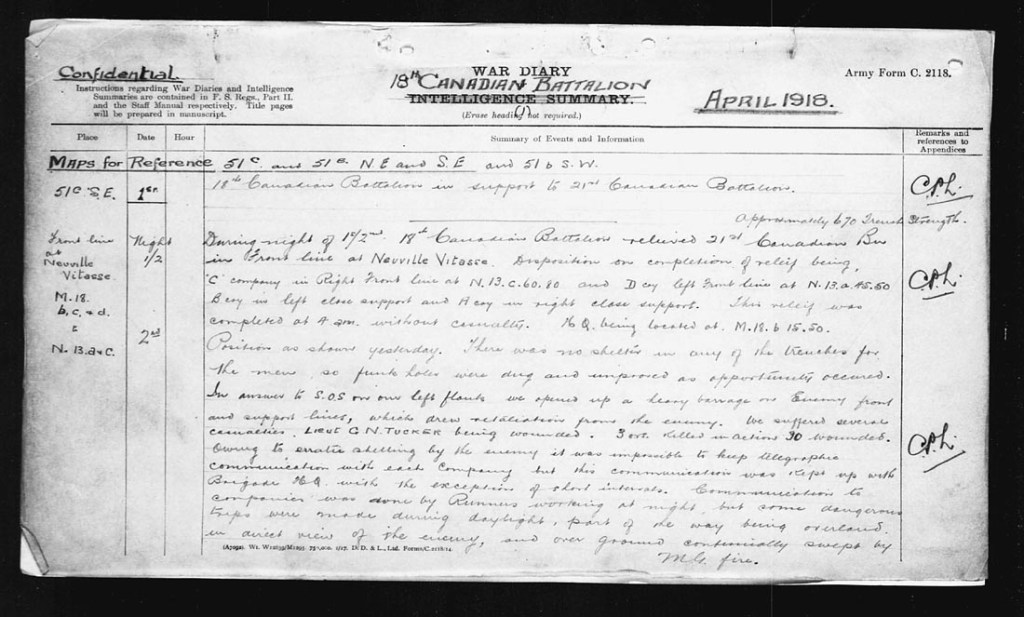 Confidential.
Instructions regarding War Diaries and Intelligence
Summaries are contained in F. S. Regs., Part II.
and the Staff Manual respectively. Title pages
will be prepared in manuscript.
WAR DIARY
18TH CANADIAN BATTALION
INTELLIGENCE SUMMARY.
(1)
(Erase heading not required.)
Army Form C. 2118.
APRIL 1918.
Place Date Hour Summary of Events and Information Remarks and references to Appendices
MAPS for Reference 51c. and 51B. N.E and S.E and 51 b S.W.
51c S.E. 1st 18th Canadian Battalion in support to 21st Canadian Battalion.
Approximately 670 Trench Strength.
Front line at Neuville Vitasse Night 1/2 During night of 1st/2nd. 18th Canadian Battalion relieved 21st Canadian Bn
in Front line at Neuville Vitasse. Disposition on completion of relief being,
'C' company in Right Front line at N.13.C.60.80 and D coy left Front line at N.13.a.45.50
M.18. b, c, & d. B coy in left close support and A coy in right close support. This releif was
completed at 4 am. without casualties. H.Q. being located at M.18.b 15.50.
& N. 13. a & c. 2nd Position as shown yesterday. There was no shelter in any of the trenches for
the men, so funk holes were dug and improved as opportunity occured.
In answer to S.O.S on our left flank we opened up a heavy barrage on Enemy front
and support lines, which drew retaliation from the enemy. We suffered several
casualties, LIEUT G.N. TUCKER being wounded. 3 o.r. Killed in action 30 wounded.
Owing to erratic shelling by the enemy it was impossible to keep telegraphic
communication with each Company but this communication was kept up with
Brigade H.Q. with the exception of short intervals. Communication to
companies was done by Runners working at night, but some dangerous
trips were made during daylight, part of the way being overland.
in direct view of the enemy, and over ground continually swept by
M.G. fire.